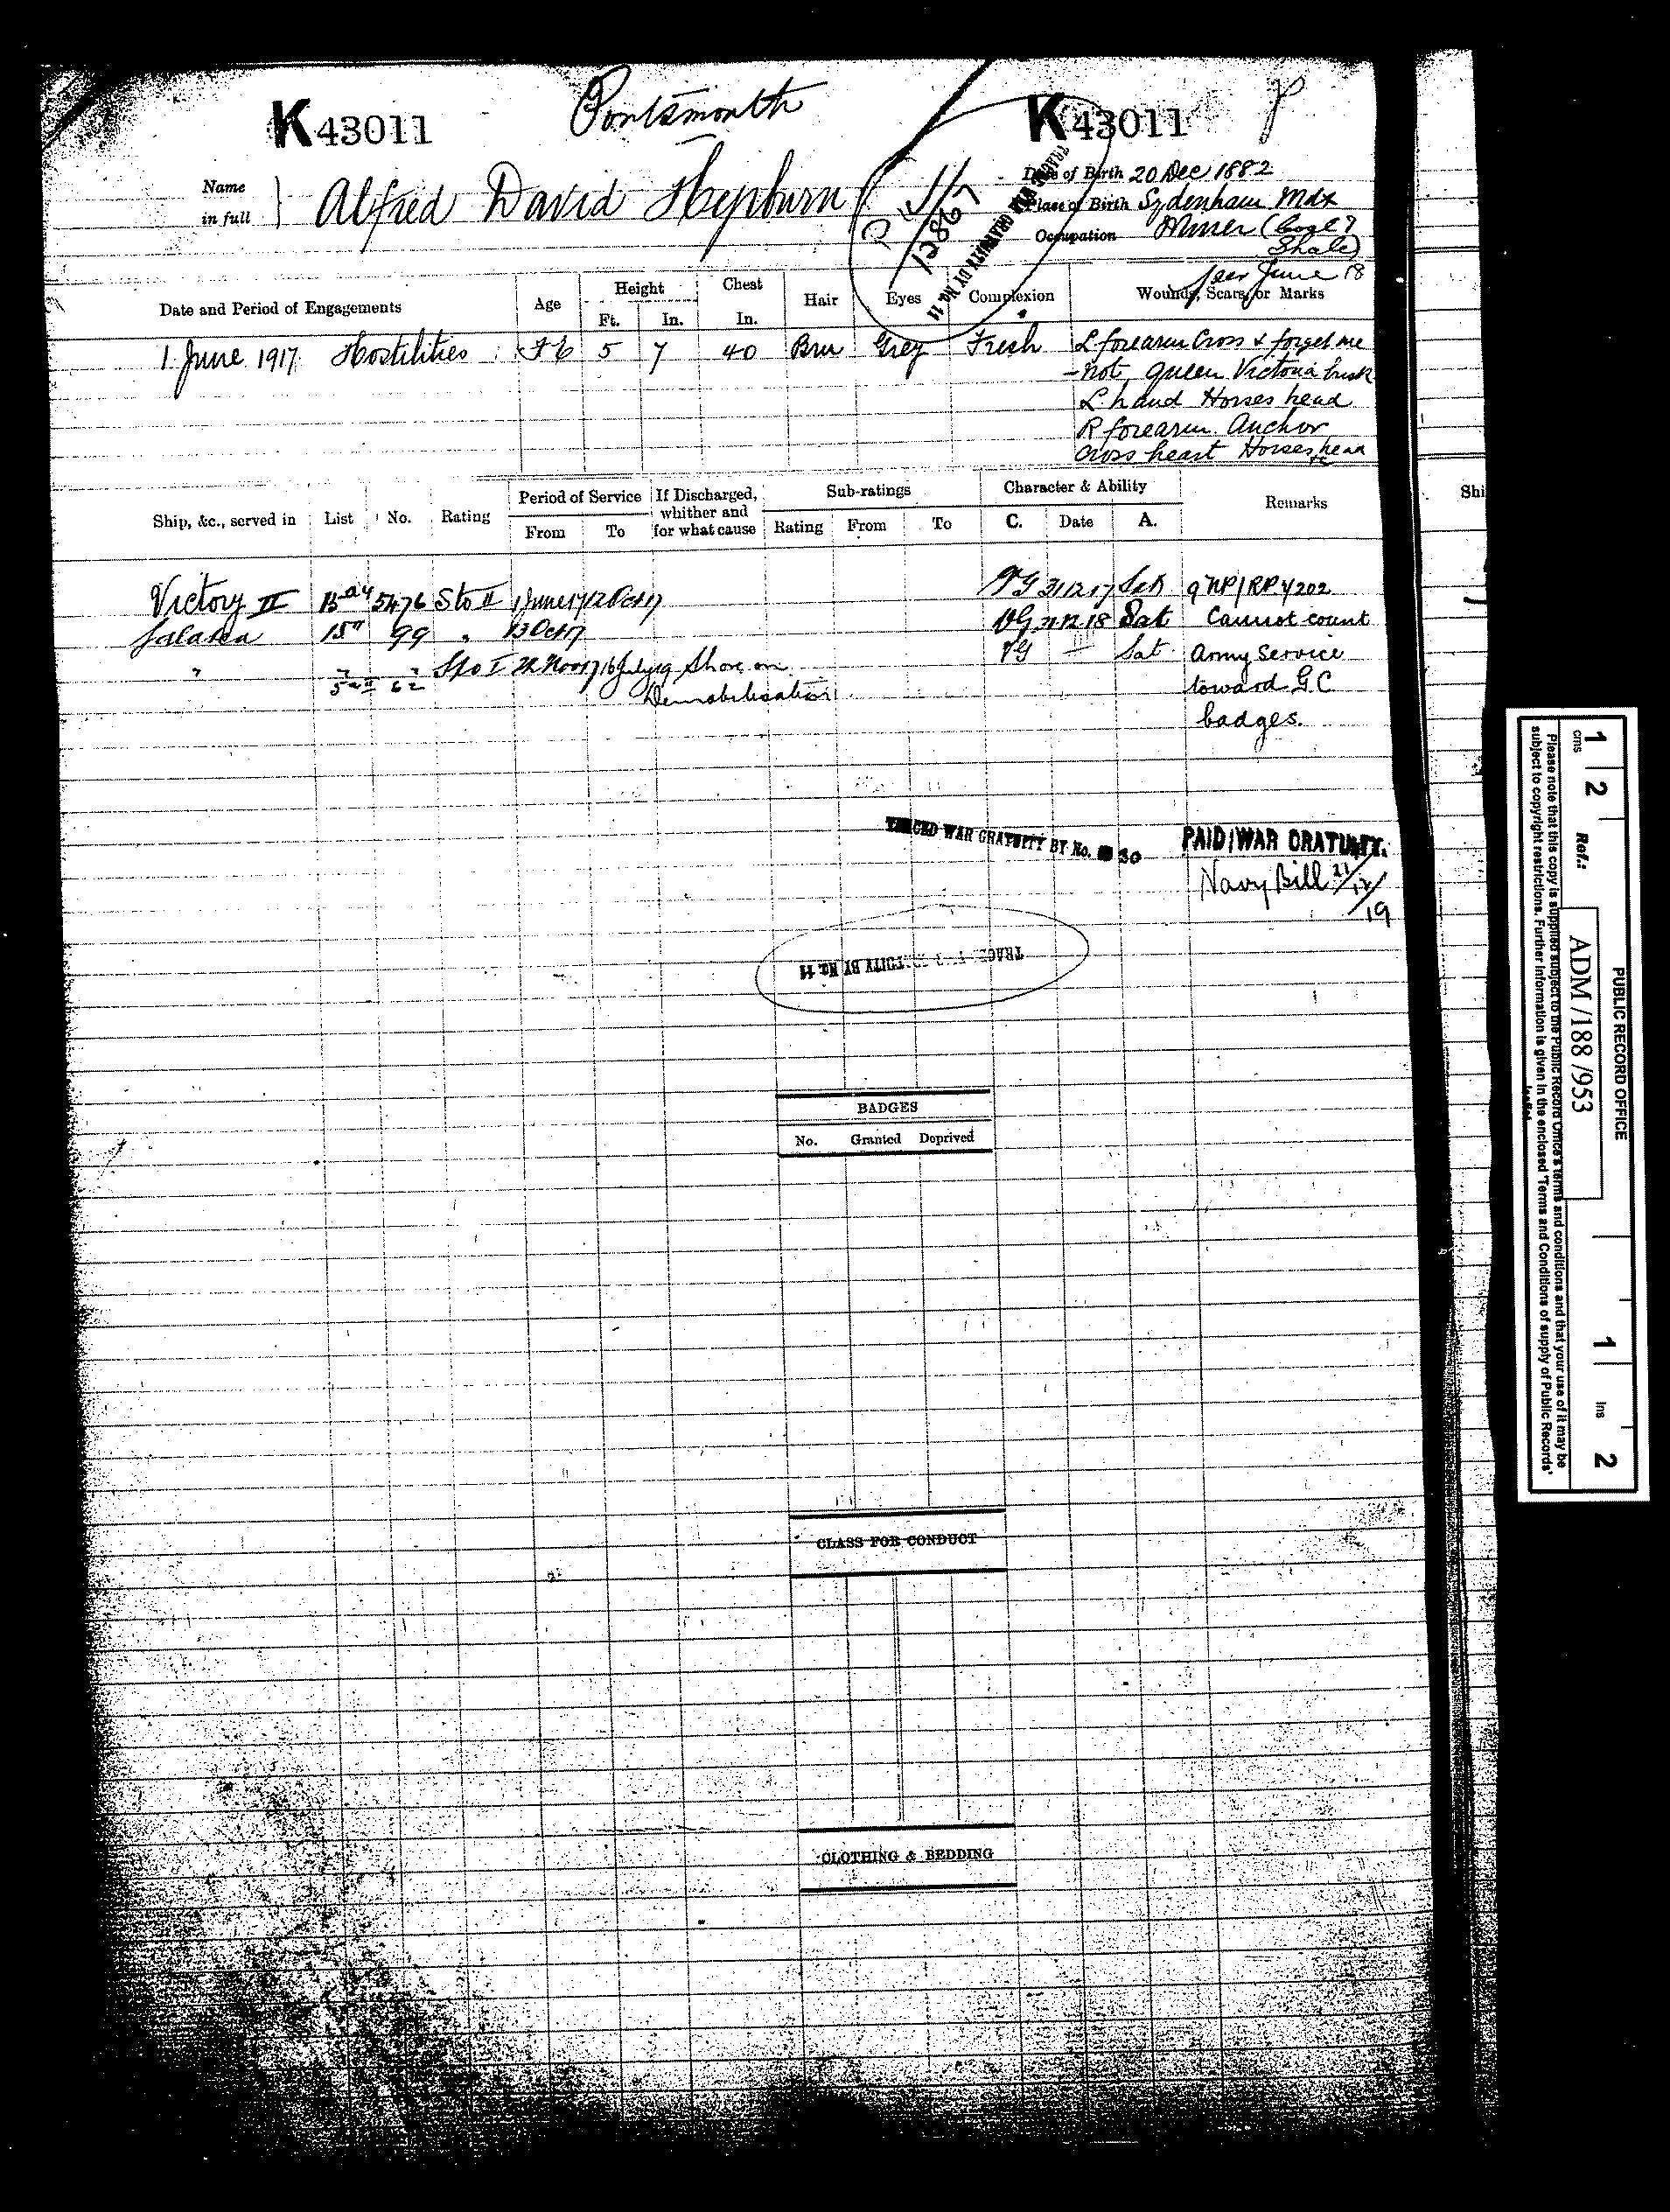 K 43011
Portsmouth
K 43011
Name in full } Alfred David Hepburn
12867
Date of Birth 20 Dec 1882
Place of Birth Sydenham Mdx
Occupation Miner (Coal &
Shale)
June 18
Date and Period of Engagements Age Height Ft. In. Chest In. Hair Eyes Complexion Wounds, Scars, or Marks
1 June 1917 Hostilities 5 7 40 Brn Grey Fresh L forearm Cross & forget me
- not, Queen Victoria bust
L. hand Horses head
R forearm Anchor
cross heart Horses head
Ship, &c., served in List No. Rating Period of Service From To If Discharged, whither and for what cause Sub-ratings Rating From To Character & Ability C. Date A. Remarks
Shi
Victory II 5476 Sto II 1 June 17 12 Oct 17 VG 31.12.17 Sat
15" 99 " 13 Oct 17 VG 31.12.18 Sat Cannot count
" Sto I 16 July 19 Shore on VG — Sat Army Service
5 62 Demobilisation toward GC
badges.
TRACED WAR GRATUITY BY No. 30
PAID/WAR GRATUITY.
Navy Bill 21/12/19
BADGES
No. Granted Deprived
CLASS FOR CONDUCT
CLOTHING & BEDDING
PUBLIC RECORD OFFICE
1 2 1 2
cms Ref.: ADM /188 /953 ins
Please note that this copy is supplied subject to the Public Record Office's terms and conditions and that your use of it may be
subject to copyright restrictions. Further information is given in the enclosed 'Terms and Conditions of supply of Public Records'